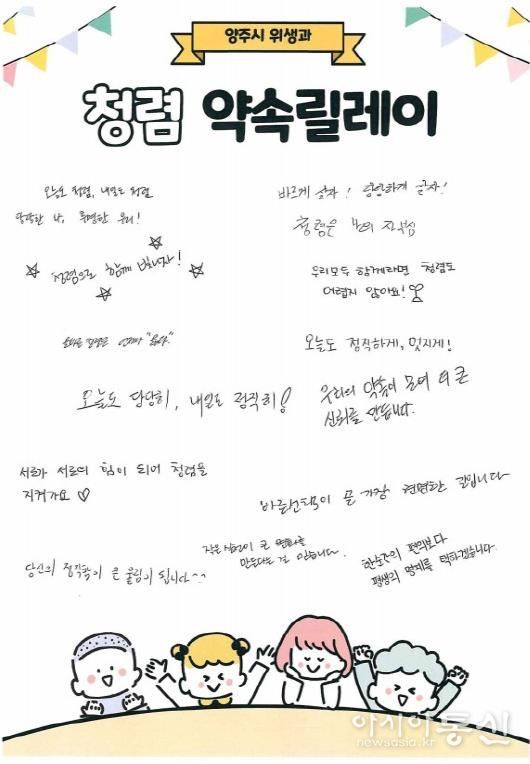 양주시 위생과
청렴 약속릴레이
오늘도 청렴, 내일도 청렴
당당한 나, 투명한 우리!
바르게 살자! 당당하게 살자!
청렴은 나의 자부심
청렴으로 함께 빛나자!
우리모두 함께라면 청렴도
어렵지 않아요!
오늘도 정직하게, 멋지게!
오늘도 당당히, 내일도 정직히!
우리의 약속이 모여 더 큰
신뢰를 만듭니다.
서로가 서로의 힘이 되어 청렴을
지켜가요 ♡
바른선택이 곧 가장 현명한 길입니다
작은 실천이 큰 변화를
만든다는 걸 믿습니다.
한순간의 편의보다
평생의 명예를 택하겠습니다.
당신의 정직함이 큰 울림이 됩니다^^
아시아통신
newsasia.kr